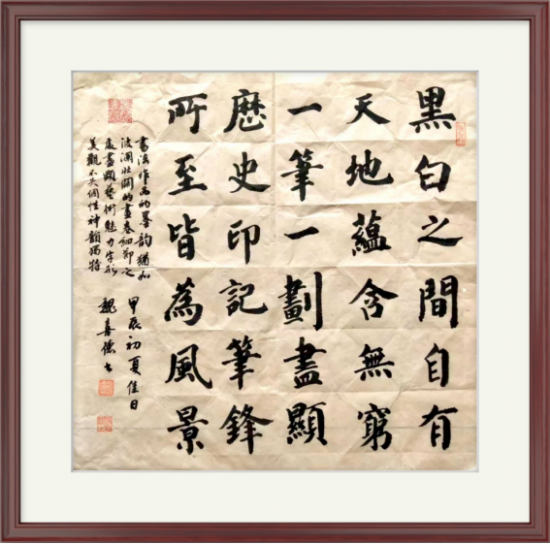 黑白之間自有
天地蘊含無窮
一筆一劃盡顯
歷史印記筆鋒
所至皆為風景
書法作品的墨韵猶如
波瀾壯闊的畫卷細節之
處盡顯藝術魅力字形
美觀不失個性神韻獨特
甲辰初夏佳日
魏喜德書